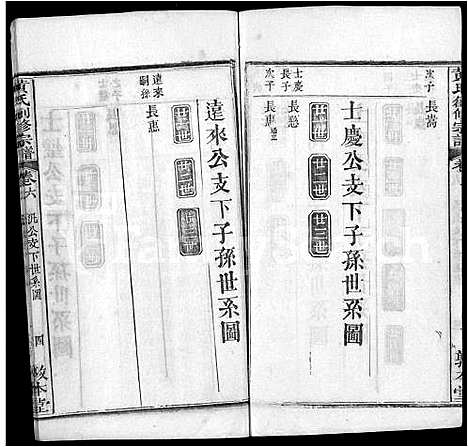 黄氏創修宗譜
次子 長嵩
士慶公支下子孫世系圖
廿一世
廿二世
廿三世
士慶
長子 長懸
次子 長惠
達來公支下子孫世系圖
廿一世
廿二世
廿三世
達來
嗣孫 長惠
黃氏創修宗譜 卷六 公支下世系圖 四 敦本堂